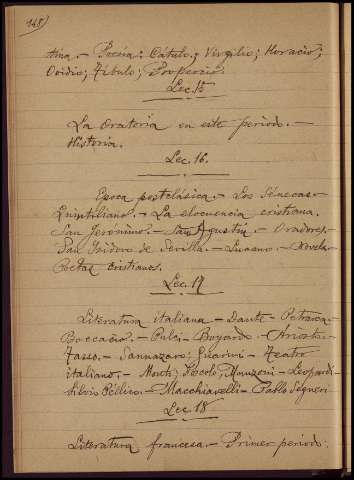 148)
tina.- Poesia: Cátulo; Virgilio; Horacio;
Ovidio; Tíbulo; Propercio.
Lec. 15
La oratoria en este periodo.-
Historia.
Lec. 16.
Epoca postclásica.- Los Sénecas-
Quintiliano.- La elocuencia cristiana.
San Jerónimo.- San Agustín.- Oradores.
San Isidoro de Sevilla.- Lucano.- Novela-
Poetas cristianos.
Lec. 17
Literatura italiana- Dante- Petrarca-
Boccacio.- Pulci- Boyardo.- Ariosto-
Tasso.- Sannazaro; Guarini- Teatro
italiano.- Monti; Manzoni- Leopardi-
Silvio Péllico.- Macchiavelli- Pablo Segneri
Lec. 18
Literatura francesa.- Primer periodo: